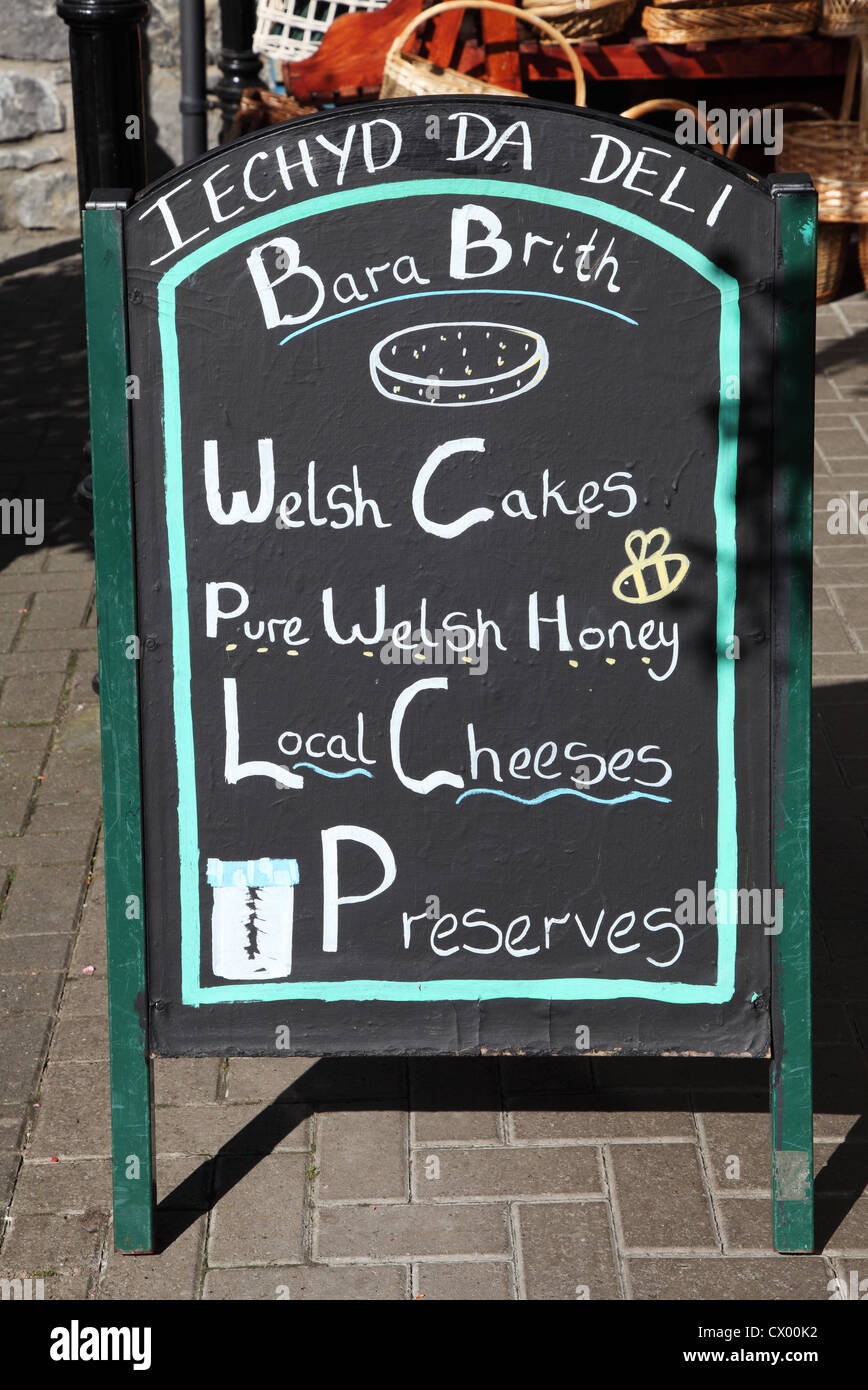 IECHYD DA DELI
Bara Brith
Welsh Cakes
Pure Welsh Honey
Local Cheeses
Preserves
alamy
a
a
a
a
alamy
Image ID: CX00K2
www.alamy.com